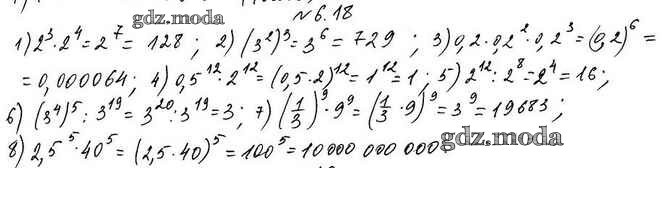 gdz.moda
№6.18
1) 2³·2⁴=2⁷= 128 ; 2) (3²)³=3⁶=729 ; 3) 0,2·0,2²·0,2³=(0,2)⁶=
=0,000064; 4) 0,5¹²·2¹²=(0,5·2)¹²=1¹²=1; 5) 2¹²:2⁸=2⁴=16;
6) (3⁴)⁵:3¹⁹=3²⁰:3¹⁹=3; 7) (1/3)⁹·9⁹=(1/3·9)⁹=3⁹=19683;
8) 2,5⁵·40⁵=(2,5·40)⁵=100⁵=10000 000 000.
gdz.moda